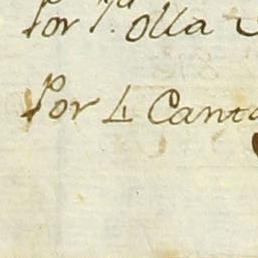 Por 1.ª olla
Por 4 Canta